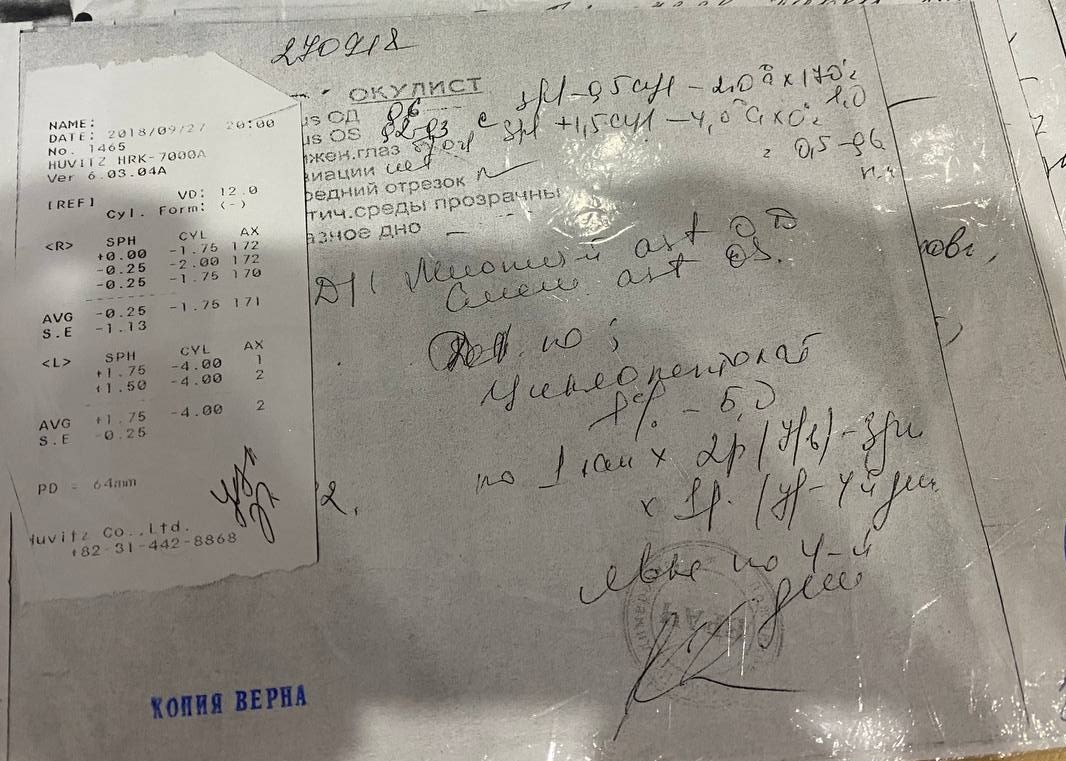 270918
NAME:
DATE: 2018/09/27 20:00
No. 1465
HUVITZ HRK-7000A
Ver 6.03.04A
[REF] VD: 12.0
Cyl. Form: (-)
<R> SPH CYL AX
+0.00 -1.75 172
-0.25 -2.00 172
-0.25 -1.75 170
AVG -0.25 -1.75 171
S.E -1.13
<L> SPH CYL AX
+1.75 -4.00 1
+1.50 -4.00 2
AVG +1.75 -4.00 2
S.E -0.25
PD = 64mm
Huvitz Co.,Ltd.
+82-31-442-8868
ОКУЛИСТ
us ОД 0,6 sph -0,5 cyl -2,0 ax 170° = 1,0
us OS 0,2-0,3 с sph +1,5 cyl -4,0 ax 0°
= 0,5-0,6
жен.глаз
виации нет
редний отрезок
тич.среды прозрачны
азное дно –
Миопич ast OD
Смеш. ast OS.
Циклопентолат
1% - 5,0
по 1 кап х 2р (у/в) - 3дн
х 1р. (у) - 4й день
явка на 4-й
день
ВРАЧ
КОПИЯ ВЕРНА